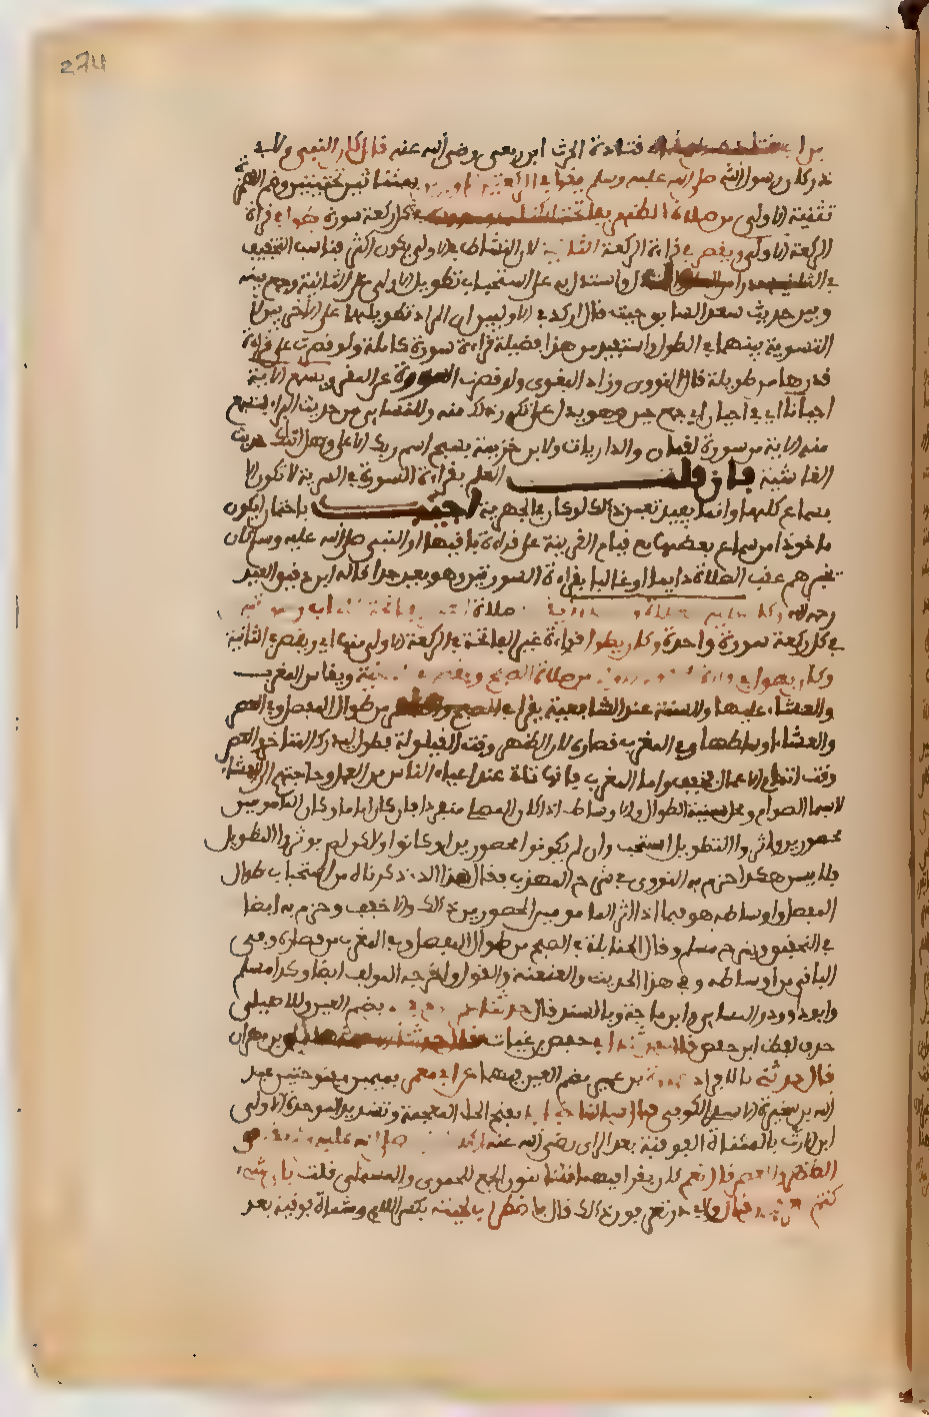 274
فتادة الحرث ابن ربعي رضي الله عنه قال كان النبي ولابي
ذر كان رسول الله صلى الله عليه وسلم يقرا في الركعتين الاوليين بمثناتين تحتيتين وضم الهمزة
تثنية الاولى من صلاة الظهر بفاتحة الكتاب وسورتين في كل ركعة سورة يطول في قراة
الركعة الاولى ويقصر في قراءة الركعة الثانية لان النشاط في الاولى يكون اكثر فناسب التخفيف
في الثانية واستدل به على استحباب تطويل الاولى على الثانية وجمع بينه
وبين حديث سعد السابق حيث قال اركد في الاوليين ان المراد تطويلهما على الاخريين لا
التسوية بينهما في الطول واستفيد من هذا افضلية قراءة سورة كاملة ولو قصرت على قراءة
قدرها من طويلة قال النووي وزاد البغوي ولو قصرت السورة عن المقرو ويسمع الاية
احيانا اي في احيان اي جمع حين وهو يدل على تكرر ذلك منه وللنسائي من حديث البراء فنسمع
منه الاية من سورة لقمان والذاريات ولابن خزيمة بسبح اسم ربك الاعلى وهل اتاك حديث
الغاشية فان قلت العلم بقراءة السورة في السرية لا يكون الا
بسماع كلها وانما يفيد تعين ذلك لو كان في الجهرية اجيب باحتمال ان يكون
ماخوذا من سماع بعضها مع قيام القرينة على قراءة باقيها او النبي صلى الله عليه وسلم كان
يخبرهم عقب الصلاة دايما او غالبا بقراءة السورتين وهو بعيد جدا قاله ابن دقيق العيد
رحمه الله وكان صلاة العصر بفاتحة الكتاب وسورتين
في كل ركعة سورة واحدة وكان يطول قراءة غير الفاتحة في الركعة الاولى منها اي ويقصر في الثانية
وكان يطول في الركعة الاولى من صلاة الصبح ويقصر في الثانية ويقاس المغرب
والعشاء عليها والسنة عند الشافعية يقرا في الصبح والظهر من طوال المفصل وفي العصر
والعشاء اوساطها وفي المغرب قصاره لان الظهر وقت القيلولة فطول ليدرك المتاخر والعصر
وقت اتمام الاعمال فخفف واما المغرب فانها تاتي عند اعياء الناس من العمل وحاجتهم الى العشاء
لاسيما الصوام ومحل سنية الطوال والاوساط اذا كان المصلي منفردا فان كان اماما وكان المامومين
محصورين واثروا التطويل استحب وان لم يكونوا محصورين او كانوا ولكن لم يوثروا التطويل
فلا يسن هكذا جزم به النووي في شرح المهذب فقال هذا الذي ذكرناه من استحباب طوال
المفصل واوساطه هو فيما اذا اثر المامومين المحصورين ذلك والا خفف وجزم به ايضا
في التحقيق وشرح مسلم وقال الحنابلة في الصبح من طوال المفصل وفي المغرب من قصاره وفي
الباقي من اوساطه وفي هذا الحديث والعنعنة والقول واخرجه المولف ايضا وكذا مسلم
وابو داوود والنسايي وابن ماجة وبالسند قال حدثنا عمر بضم العين وللاصيلي
حدثنا حفص ابن غياث قال حدثنا الاعمش سليمان بن مهران
قال حدثني بالافراد عمارة بن عمير بضم العين فيهما عن ابي معمر بميمين مفتوحتين عبد
الله بن سخبرة الاسدي الكوفي قال سالنا خبابا بفتح الخاء المعجمة وتشديد الموحدة الاولى
ابن الارت بالمثناة الفوقية بعد الراي رضي الله عنه اكان صلى الله عليه وسلم يقرا في
الظهر والعصر قال نعم كان يقرا فيهما قلنا بنون الجمع للحموي والمستملي قلت باي شيء
كنتم تعرفون قال ولابي ذر تعرفون ذلك قال باضطراب لحيته بكسر اللام ومثناة فوقية بعد